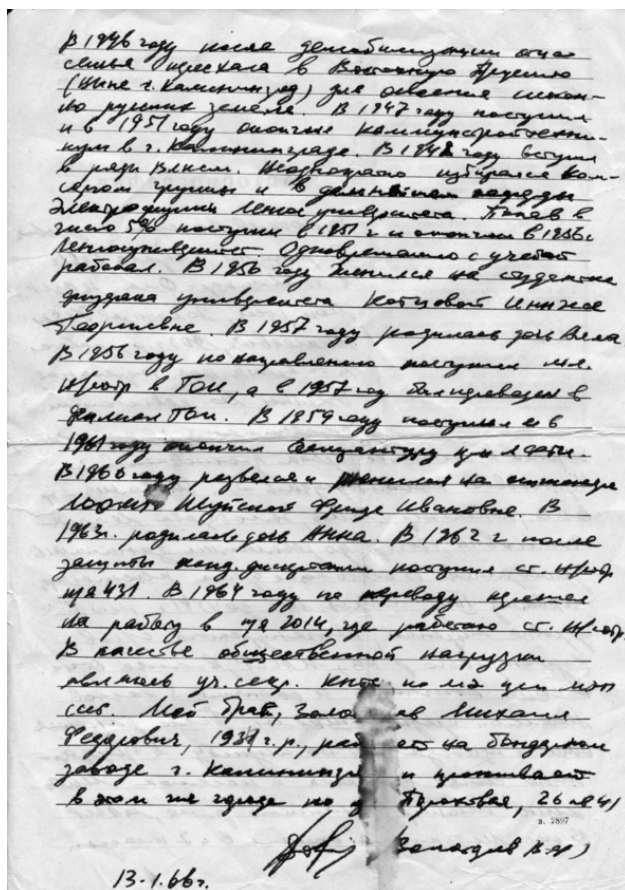 В 1946 году после демобилизации отца
семья переехала в Восточную Пруссию
(ныне г. Калининград) для освоения искон-
но русских земель. В 1947 году поступил
и в 1951 году окончил коммунстройтехни-
кум в г. Калининграде. В 1948 году вступил
в ряды ВЛКСМ. Неоднократно избирался ком-
соргом группы и в дальнейшем
Электрофизики Ленгосуниверситета. Попав в
число 5% поступил в 1951 г и окончил в 1956г.
Ленгосуниверситет. Одновременно с учебой
работал. В 1956 году женился на студентке
физфака университета Котцовой Инне
Георгиевне. В 1957 году родилась дочь Алла
В 1956 году по направлению поступил мл.
н/сотр в ГОИ, а в 1957 год был переведен в
филиал ГОИ. В 1959 году поступил и в
1961 году окончил аспирантуру при ЛФТИ.
В 1960 году развелся и женился на инженере
Шуйской Фриде Ивановне. В
1963г. родилась дочь Анна. В 1962 г после
защиты канд. диссертации поступил ст. н/сотр
п/я 431. В 1964 году по переводу перешел
на работу в п/я 2014, где работаю ст. н/сотр.
В качестве общественной нагрузки
являюсь уч. секр. КНТС по МЭ при МЭП
СССР. Мой брат, Михаил
Федорович, 1931 г.р., работает на бондарном
заводе г. Калининграда и проживает
в этом же городе по ул Портовая, 26 кв 41
з. 2897
13.1.66г.